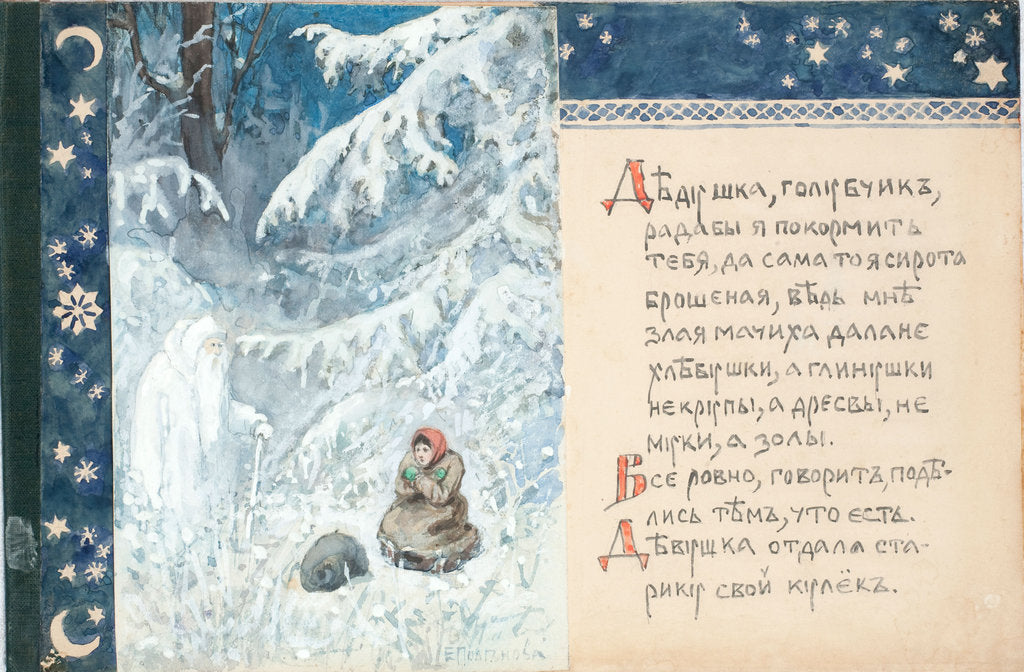 Дѣдушка, голубчикъ,
рада бы я покормить
тебя, да сама то я сирота
брошеная, вѣдь мнѣ
злая мачиха дала не
хлѣбушки, а глинушки
не крупы, а дресвы, не
муки, а золы.
Все ровно, говоритъ, подѣ-
лись тѣмъ, что есть.
Дѣвушка отдала ста-
рику свой кулёкъ.
Е Полѣнова